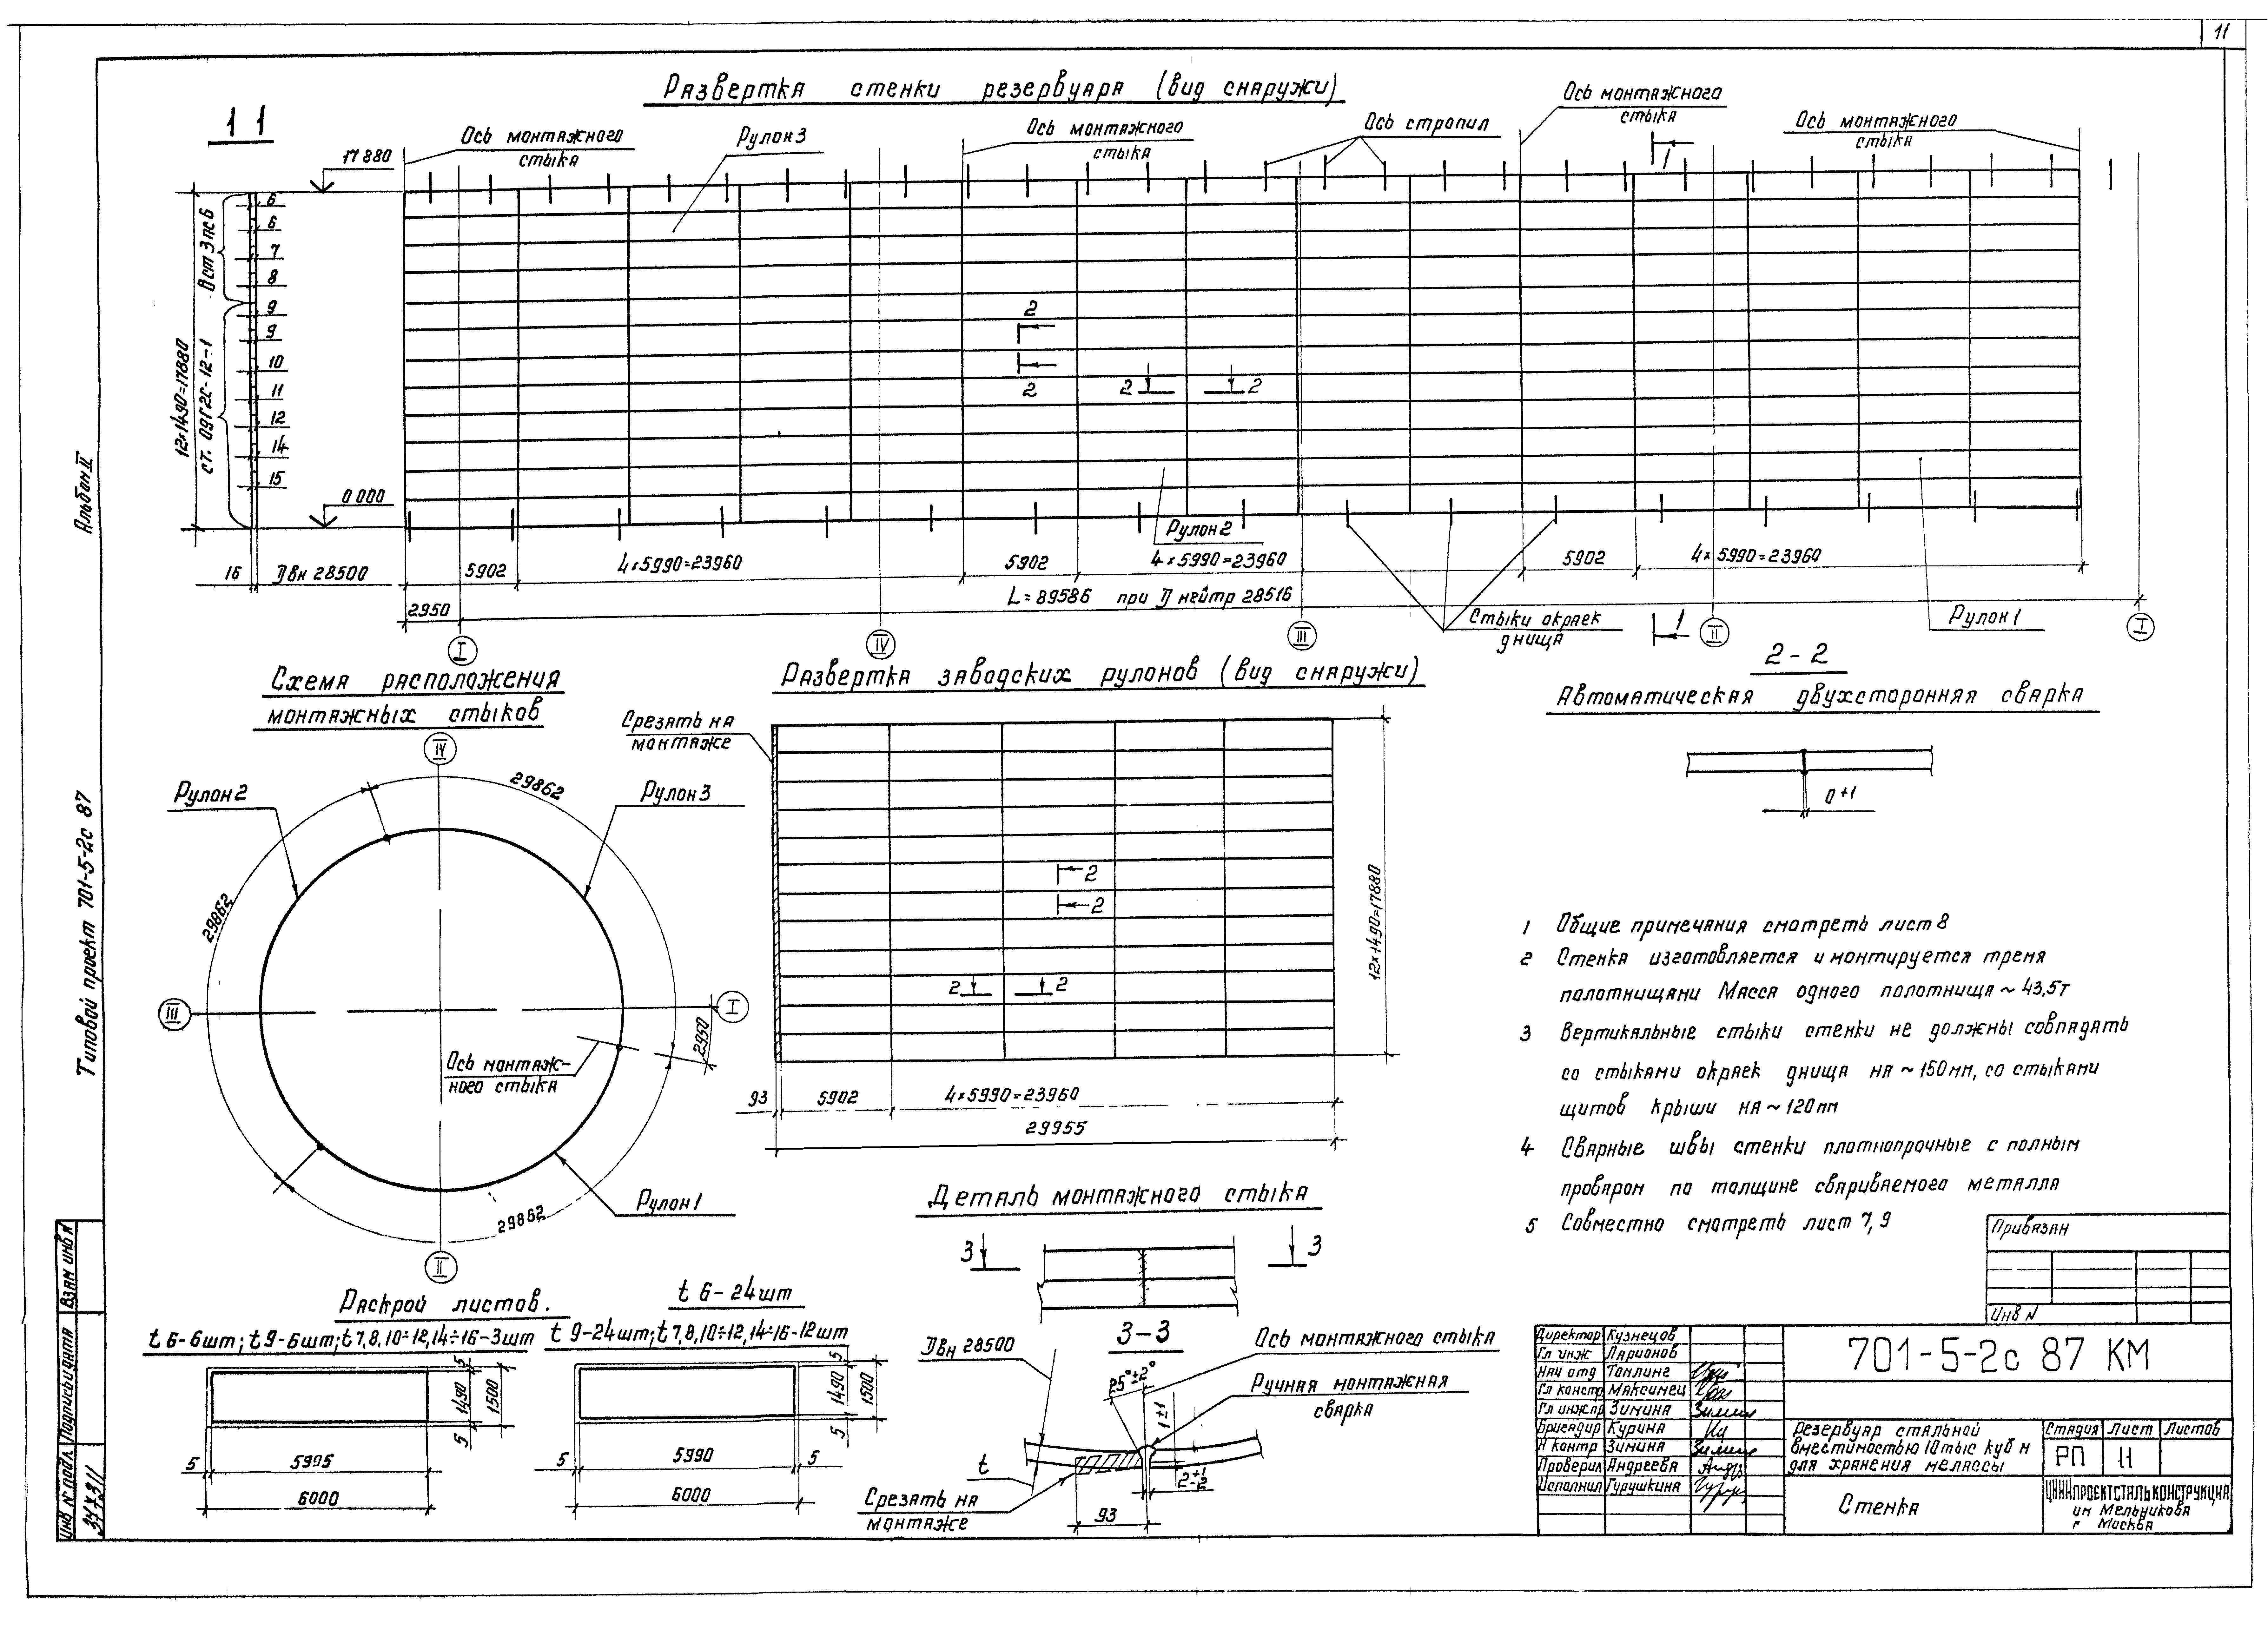 11
Развертка стенки резервуара (вид снаружи)
1 1
Ось монтажного
стыка
Рулон 3
Ось монтажного
стыка
Ось стропил
Ось монтажного
стыка
Ось монтажного
стыка
1
17 880
6
6
7
8
9
9
10
11
12
14
15
16
Вст 3пс6
ст. 09Г2С-12-1
12×1490=17880
0 000
Dвн 28500
2
2
2
2
Рулон 2
5902
4×5990=23960
5902
4×5990=23960
5902
4×5990=23960
L=89586 при D нейтр 28516
2950
Стыки окраек
днища
1
Рулон 1
I
IV
III
II
I
Схема расположения
монтажных стыков
IV
29862
Рулон 2
Рулон 3
29862
III
I
2950
Ось монтаж-
ного стыка
29862
Рулон 1
II
Развертка заводских рулонов (вид снаружи)
Срезать на
монтаже
2
2
2
2
12×1490=17880
93
5902
4×5990=23960
29955
2-2
Автоматическая двухсторонняя сварка
0+1
1 Общие примечания смотреть лист 8
2 Стенка изготовляется и монтируется тремя
полотнищами Масса одного полотнища ~ 43,5т
3 Вертикальные стыки стенки не должны совпадать
со стыками окраек днища на ~150мм, со стыками
щитов крыши на ~120мм
4 Сварные швы стенки плотнопрочные с полным
проваром по толщине свариваемого металла
5 Совместно смотреть лист 7, 9
Деталь монтажного стыка
3
3
3-3
Dвн 28500
25°±2°
Ось монтажного стыка
Ручная монтажная
сварка
1±1
t
2+1-2
Срезать на
монтаже
93
Раскрой листов.
t 6-24шт
t 6-6шт; t 9-6шт; t 7,8,10÷12,14÷16-3шт
t 9-24шт; t 7,8,10÷12,14÷16-12шт
5
1490
1500
5
5
5995
6000
5
1490
1500
5
5
5990
5
6000
Альбом II
Типовой проект 701-5-2с 87
Взам инв №
Подпись и дата
Инв № подл.
Привязан
Инв N
701-5-2с 87 КМ
Директор Кузнецов
Гл инж Ларионов
Нач отд Томлинг
Гл констр Максимец
Гл инж пр Зимина
Бригадир Курина
Н контр Зимина
Проверил Андреева
Исполнил Гурушкина
Резервуар стальной
вместимостью 10 тыс куб м
для хранения мелассы
Стадия Лист Листов
РП 11
Стенка
ЦНИИПРОЕКТСТАЛЬКОНСТРУКЦИЯ
им Мельникова
г Москва